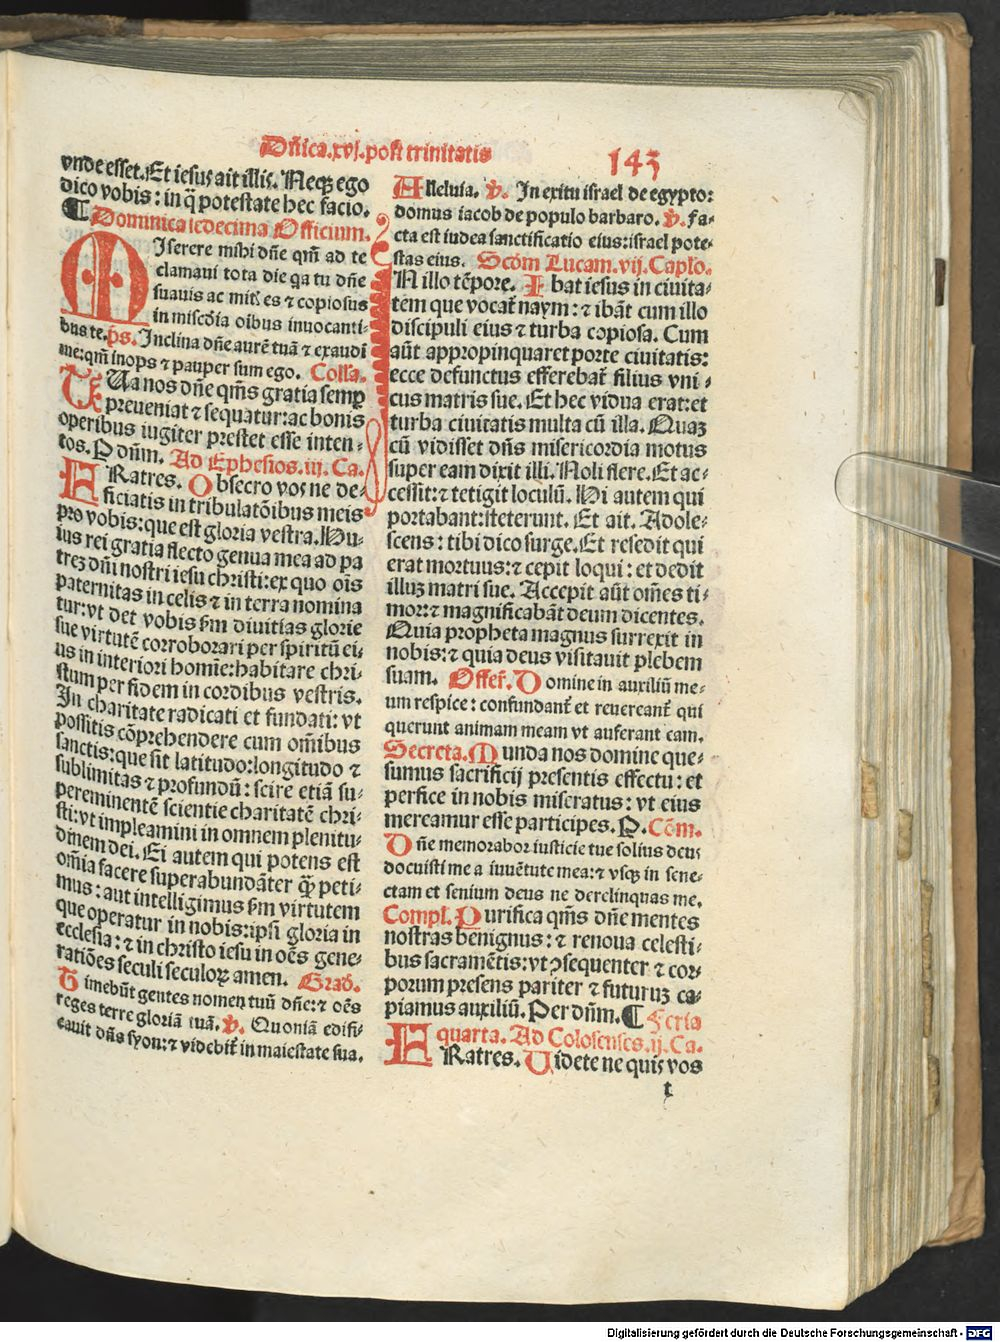 Dñica.xvj.post trinitatis
143
vnde esset. Et iesus ait illis. Neqꝫ ego
dico vobis: in q̃ potestate hec facio.
¶ Dominica sedecima Officium.
MIserere mihi dñe qm̃ ad te
clamaui tota die qa tu dñe
suauis ac mitꝭ es ⁊ copiosus
in miscd̃ia oibus inuocanti-
bus te. ps. Inclina dñe aurẽ tuã ⁊ exaudi
me: qm̃ inops ⁊ pauper sum ego. Colla.
TUa nos dñe qm̃s gratia semꝑ
preueniat ⁊ sequatur: ac bonis
operibus iugiter prestet esse inten-
tos. P dñm. Ad Ephesios.iij. Ca.
FRatres. Obsecro vos ne de-
ficiatis in tribulatõibus meis
pro vobis: que est gloria vestra. Hu-
ius rei gratia flecto genua mea ad pa
treꝫ dñi nostri iesu christi: ex quo oĩs
paternitas in celis ⁊ in terra nomina
tur: vt det vobis ẜm diuitias glorie
sue virtutẽ corroborari per spiritũ ei-
us in interiori homĩe: habitare chri-
stum per fidem in cordibus vestris.
In charitate radicati et fundati: vt
possitis cõprehendere cum om̃ibus
sanctis: que sit latitudo: longitudo ⁊
sublimitas ⁊ profundũ: scire etiã su-
pereminentẽ scientie charitatẽ chri-
sti: vt impleamini in omnem plenitu-
dinem dei. Ei autem qui potens est
om̃ia facere superabundãter q̃ꝫ peti-
mus: aut intelligimus ẜm virtutem
que operatur in nobis: ipsi gloria in
ecclesia: ⁊ in christo iesu in oẽs gene-
ratiões seculi seculoꝝ amen. Grad.
Timebũt gentes nomen tuũ dñe: ⁊ oẽs
reges terre gloriã tuã. v. Quoniã edifi-
cauit dñs syon: ⁊ videbit̃ in maiestate sua.
Alleluia. v. In exitu israel de egypto:
domus iacob de populo barbaro. v. Fa-
cta est iudea sanctificatio eius: israel pote-
stas eius. Scd̃m Lucam.vij. Capło.
IN illo tẽpore. Ibat iesus in ciuita-
tem que vocat̃ naym: ⁊ ibãt cum illo
discipuli eius ⁊ turba copiosa. Cum
aũt appropinquaret porte ciuitatis:
ecce defunctus efferebat̃ filius vni-
cus matris sue. Et hec vidua erat: et
turba ciuitatis multa cũ illa. Quaꝫ
cũ vidisset dñs misericordia motus
super eam dixit illi. Noli flere. Et ac-
cessit: ⁊ tetigit loculũ. Hi autem qui
portabant: steterunt. Et ait. Adole-
scens: tibi dico surge. Et resedit qui
erat mortuus: ⁊ cepit loqui: et dedit
illuꝫ matri sue. Accepit aũt om̃es ti-
mor: ⁊ magnificabãt deum dicentes.
Quia propheta magnus surrexit in
nobis: ⁊ quia deus visitauit plebem
suam. Offer̃. Domine in auxiliũ me-
um respice: confundant̃ et reuereant̃ qui
querunt animam meam vt auferant eam.
Secreta. Munda nos domine que-
sumus sacrificij presentis effectu: et
perfice in nobis miseratus: vt eius
mereamur esse participes. P. Cõm.
Dñe memorabor iusticie tue solius deus
docuisti me a iuuẽtute mea: ⁊ vsqꝫ in sene-
ctam et senium deus ne derelinquas me.
Compl. Purifica qm̃s dñe mentes
nostras benignus: ⁊ renoua celesti-
bus sacramẽtis: vt ꝯsequenter ⁊ cor-
porum presens pariter ⁊ futuruꝫ ca-
piamus auxiliũ. Per dñm. ¶ Feria
quarta. Ad Colosenses.ij. Ca.
FRatres. Uidete ne quis vos
t
Digitalisierung gefördert durch die Deutsche Forschungsgemeinschaft - DFG